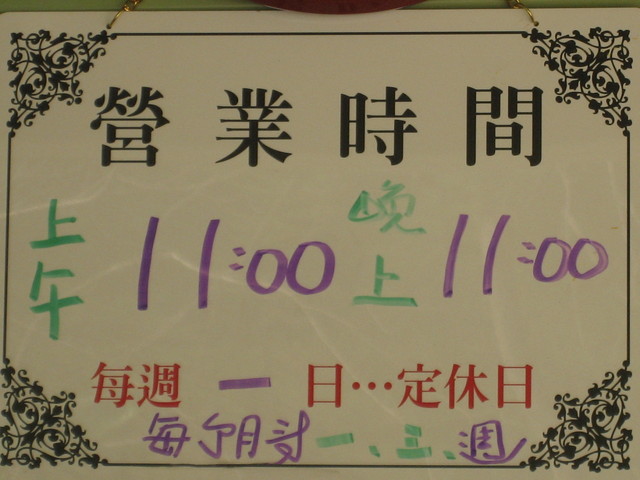 營業時間
上午 11:00 晚上 11:00
每週 一 日…定休日
每个月才一、三、週